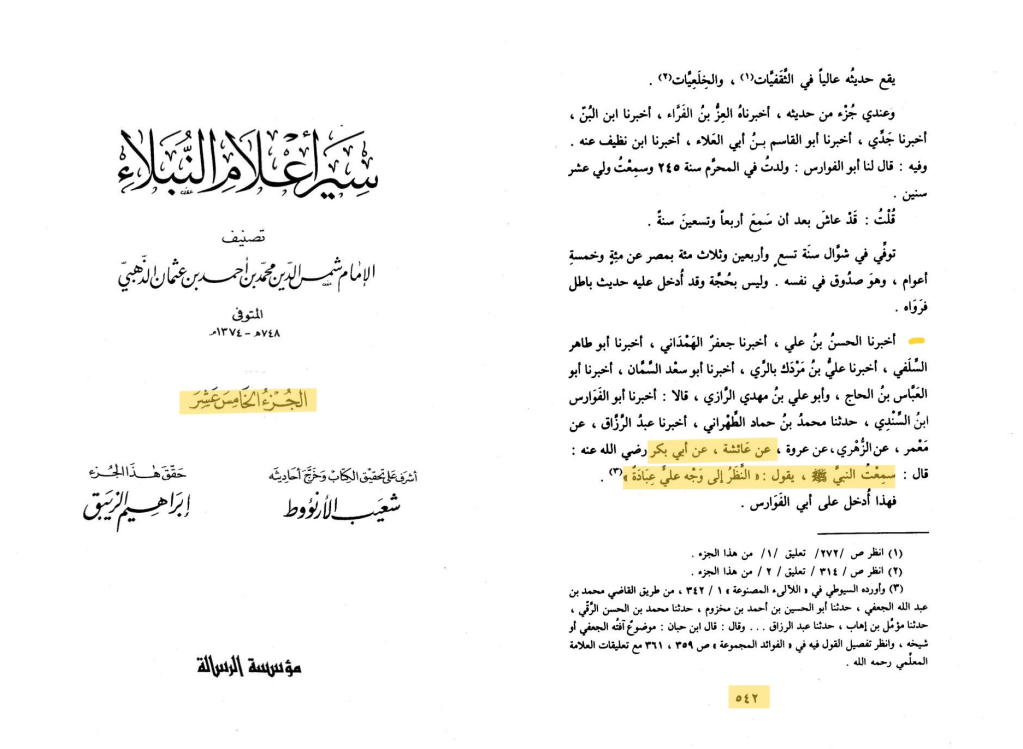 سير أعلام النبلاء
تصنيف
الإمام شمس الدين محمد بن أحمد بن عثمان الذهبي
المتوفى
٧٤٨هـ - ١٣٧٤م
الجزء الخامس عشر
أشرف على تحقيق الكتاب وخرّج أحاديثه
شعيب الأرنؤوط
حقق هذا الجزء
إبراهيم الزيبق
مؤسسة الرسالة
يقع حديثُه عالياً في الثَّقَفيَّات(١) ، والخِلَعِيَّات(٢) .
وَعندي جُزْء من حديثه ، أخبرناهُ العِزُّ بنُ الفَرَّاء ، أخبرنا ابن البُنّ ،
أخبرنا جَدِّي ، أخبرنا أبو القاسم بـنُ أبي العَلاء ، أخبرنا ابن نظيف عنه .
وفيه : قال لنا أبو الفوارس : ولدتُ في المحرَّم سنة ٢٤٥ وسمِعْتُ ولي عشر
سنين .
قُلْتُ : قَدْ عاشَ بعد أن سَمِعَ أربعاً وتسعينَ سنةً .
توفِّي في شوَّال سنَة تسعٍ وأربعين وثلاث مئة بمصر عن مئةٍ وخمسةِ
أعوام ، وهوَ صدُوق في نفسه . وليس بحُجَّة وقد أُدخل عليه حديث باطل
فرَوَاه .
أخبرنا الحسنُ بنُ علي ، أخبرنا جعفرٌ الهَمْدَاني ، أخبرنا أبو طاهر
السِّلَفي ، أخبرنا عليُّ بنُ مَرْدَك بالرَّي ، أخبرنا أبو سعْد السَّمَّان ، أخبرنا أبو
العَبَّاس بنُ الحاج ، وأبو علي بنُ مهدي الرَّازي ، قالا : أخبرنا أبو الفَوَارس
ابنُ السِّنْدي ، حدثنا محمدُ بنُ حماد الطِّهْراني ، أخبرنا عبدُ الرَّزَّاق ، عن
مَعْمر ، عن الزُّهْري، عن عروة ، عن عَائشة ، عن أبي بكر رضي الله عنه :
قال : سمِعْتُ النبيَّ ﷺ ، يقول : « النَّظَرُ إلى وَجْه عليٍّ عِبَادَةٌ »(٣) .
فهذا أُدخل على أبي الفَوَارس .
(١) انظر ص /٢٧٢/ تعليق /١/ من هذا الجزء .
(٢) انظر ص / ٣١٤ / تعليق / ٢ / من هذا الجزء .
(٣) وأورده السيوطي في « اللآلىء المصنوعة » ١ / ٣٤٢ ، من طريق القاضي محمد بن
عبد الله الجعفي ، حدثنا أبو الحسين بن أحمد بن مخزوم ، حدثنا محمد بن الحسن الرَّقّي ،
حدثنا مؤمَّل بن إهاب ، حدثنا عبد الرزاق . . . وقال : قال ابن حبان : موضوعٌ آفتُه الجعفي أو
شيخه ، وانظر تفصيل القول فيه في « الفوائد المجموعة » ص ٣٥٩ ، ٣٦١ مع تعليقات العلامة
المعلِّمي رحمه الله .
٥٤٢